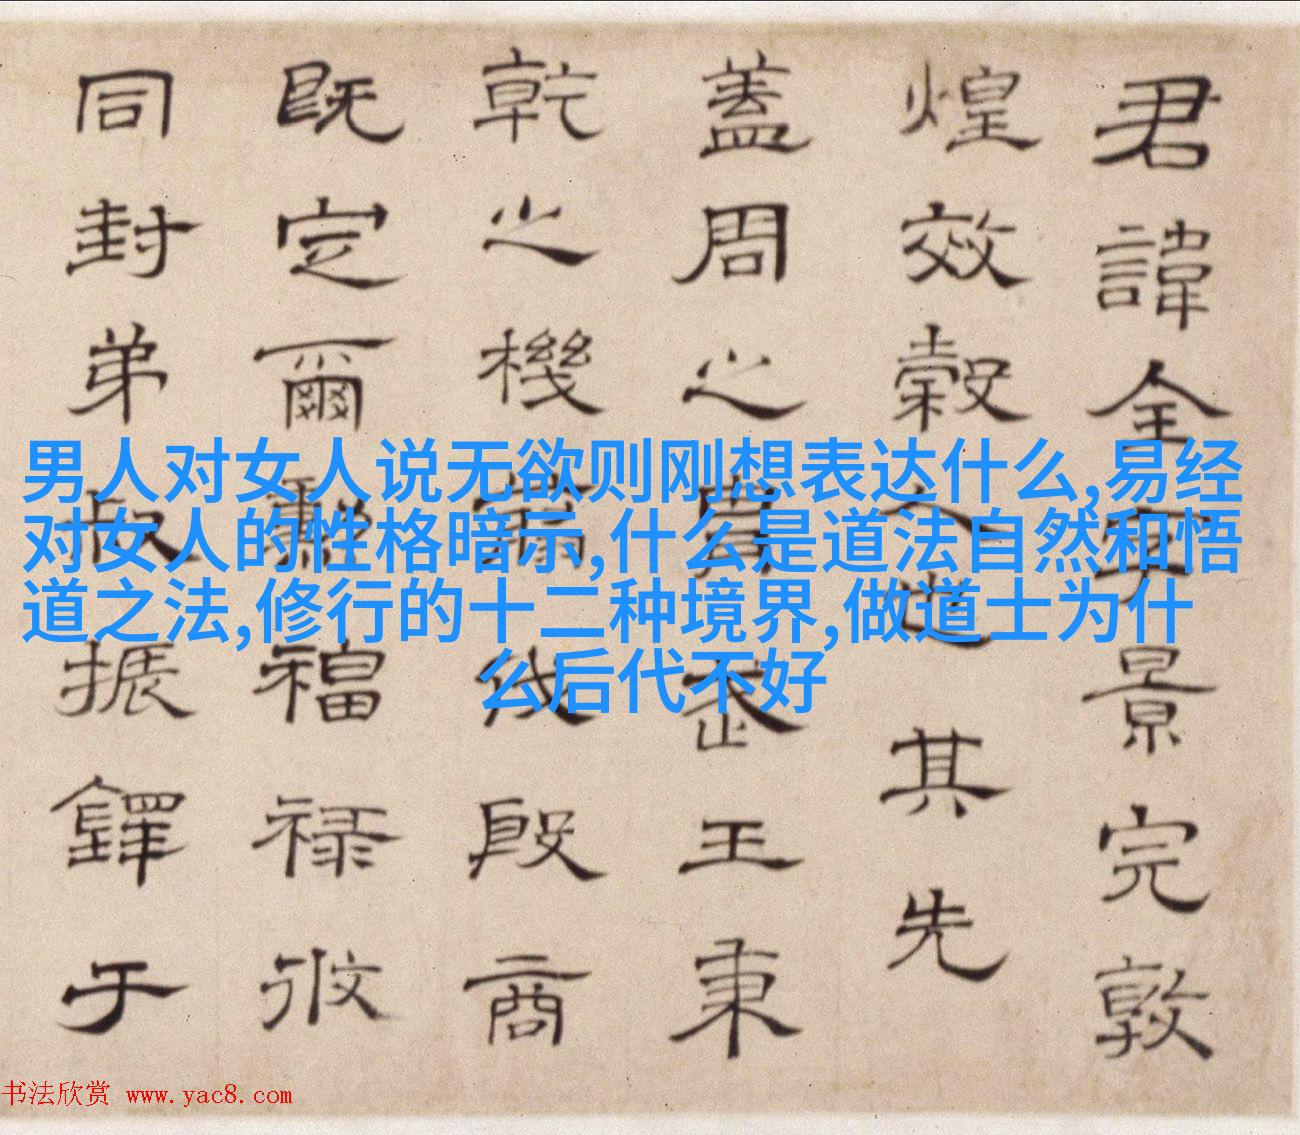 君諱全字景完敦
煌效穀人也其先
蓋周之胄武王秉
乾之機翦伐殷商
既定爾勳福祿攸
同封弟叔振鐸于
男人对女人说无欲则刚想表达什么,易经
对女人的性格暗示,什么是道法自然和悟
道之法,修行的十二种境界,做道士为什
么后代不好
书法欣赏 www.yac8.com